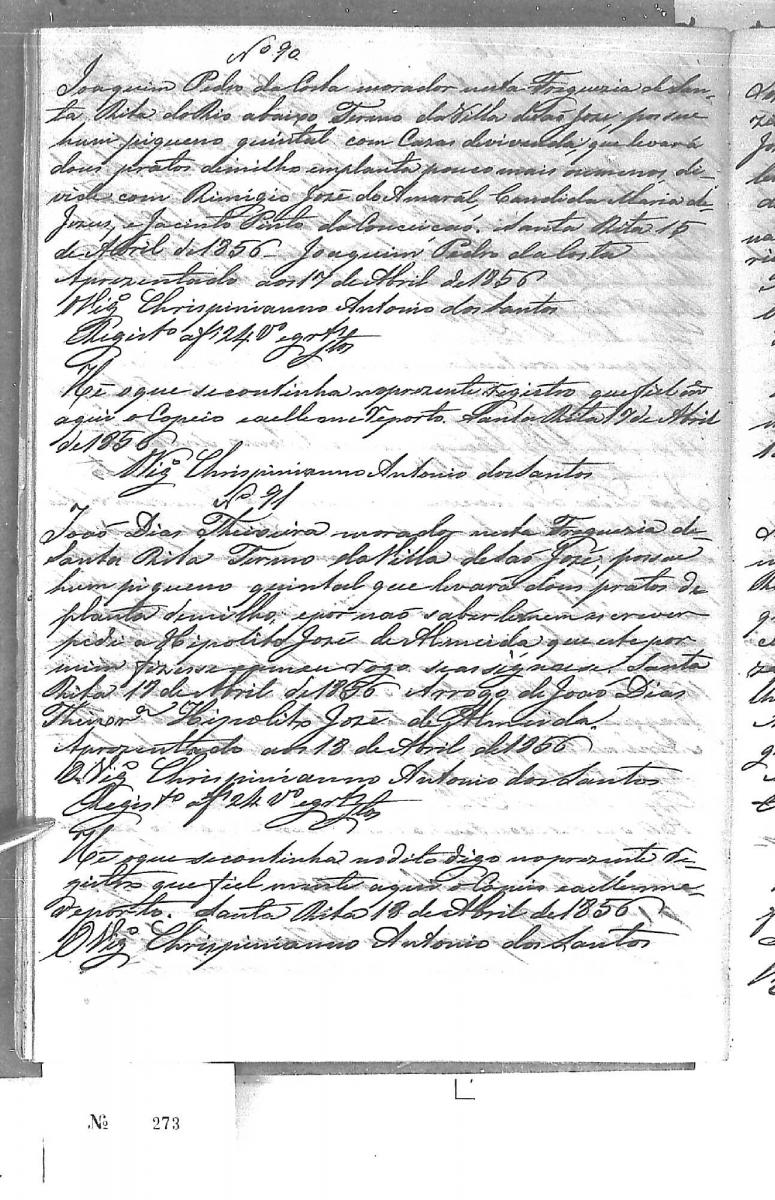 Nº 90
Joaquim Pedro da Costa morador nesta Freguezia de San-
ta Rita do Rio abaixo Termo da Villa de São José, possue
hum piqueno quintal com Cazas de vivenda, que levará
dous pratos de milho em planta pouco mais ou menos di-
vide com Rimigio José do Amarál, Candida Maria de
Jezus, e Jacinto Pinto da Conceicaõ. Santa Rita 15
de Abril de 1856 Joaquim Pedro da Costa
Aprezentado aos 17 de Abril de 1856
O Vigº Chrispinianno Antonio dos Santos
Registº a fs 24 vº e grtz
Stos
Hé o que se continha no prezente registro que fiel mte
aqui o Copeio e a elle me reporto. Santa Rita 17 de Abril
de 1856
O Vigº Chrispinianno Antonio dos Santos
Nº 91
João Dias Theixeira morador nesta Freguezia de
Santa Rita Termo da Villa de São José, possue
hum piqueno quintal que levará dous pratos de
planta de milho, e por naõ saber ler nem escrever
pedi a Hipolito José de Almeida que este por
mim fizesse e a meu rogo se assignase. Santa
Rita 17 de Abril de 1856 Arrogo de João Dias
Hipolito José de Almeida.
Aprezentado aos 18 de Abril de 1856
O Vigº Chrispinianno Antonio dos Santos
Registº a fs 24 vº e grtz
Stos
Hé o que se continha no dito digo no prezente re-
gistro que fiel mente aqui o Copeio e a elle me
reporto. Santa Rita 18 de Abril de 1856
O Vigº Chrispinianno Antonio dos Santos
№ 273